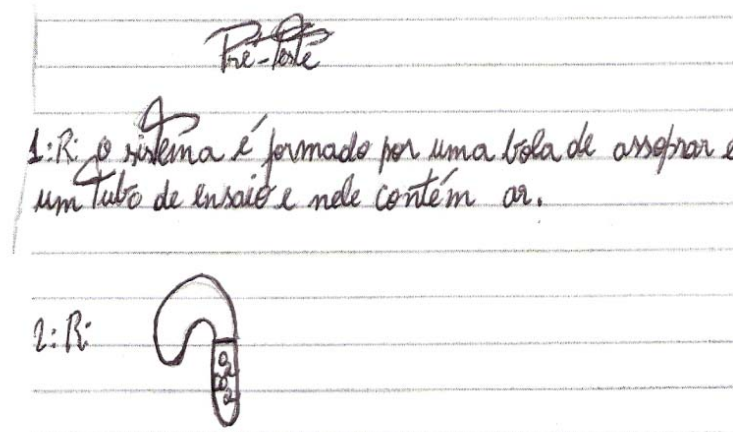 Pré-Teste
1: R: O sistema é formado por uma bola de assoprar e
um tubo de ensaio e nele contém ar.
2: R:
O2
O2